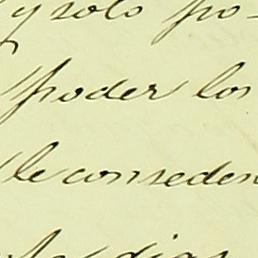 y solo po-
poder los
le conseden
dias